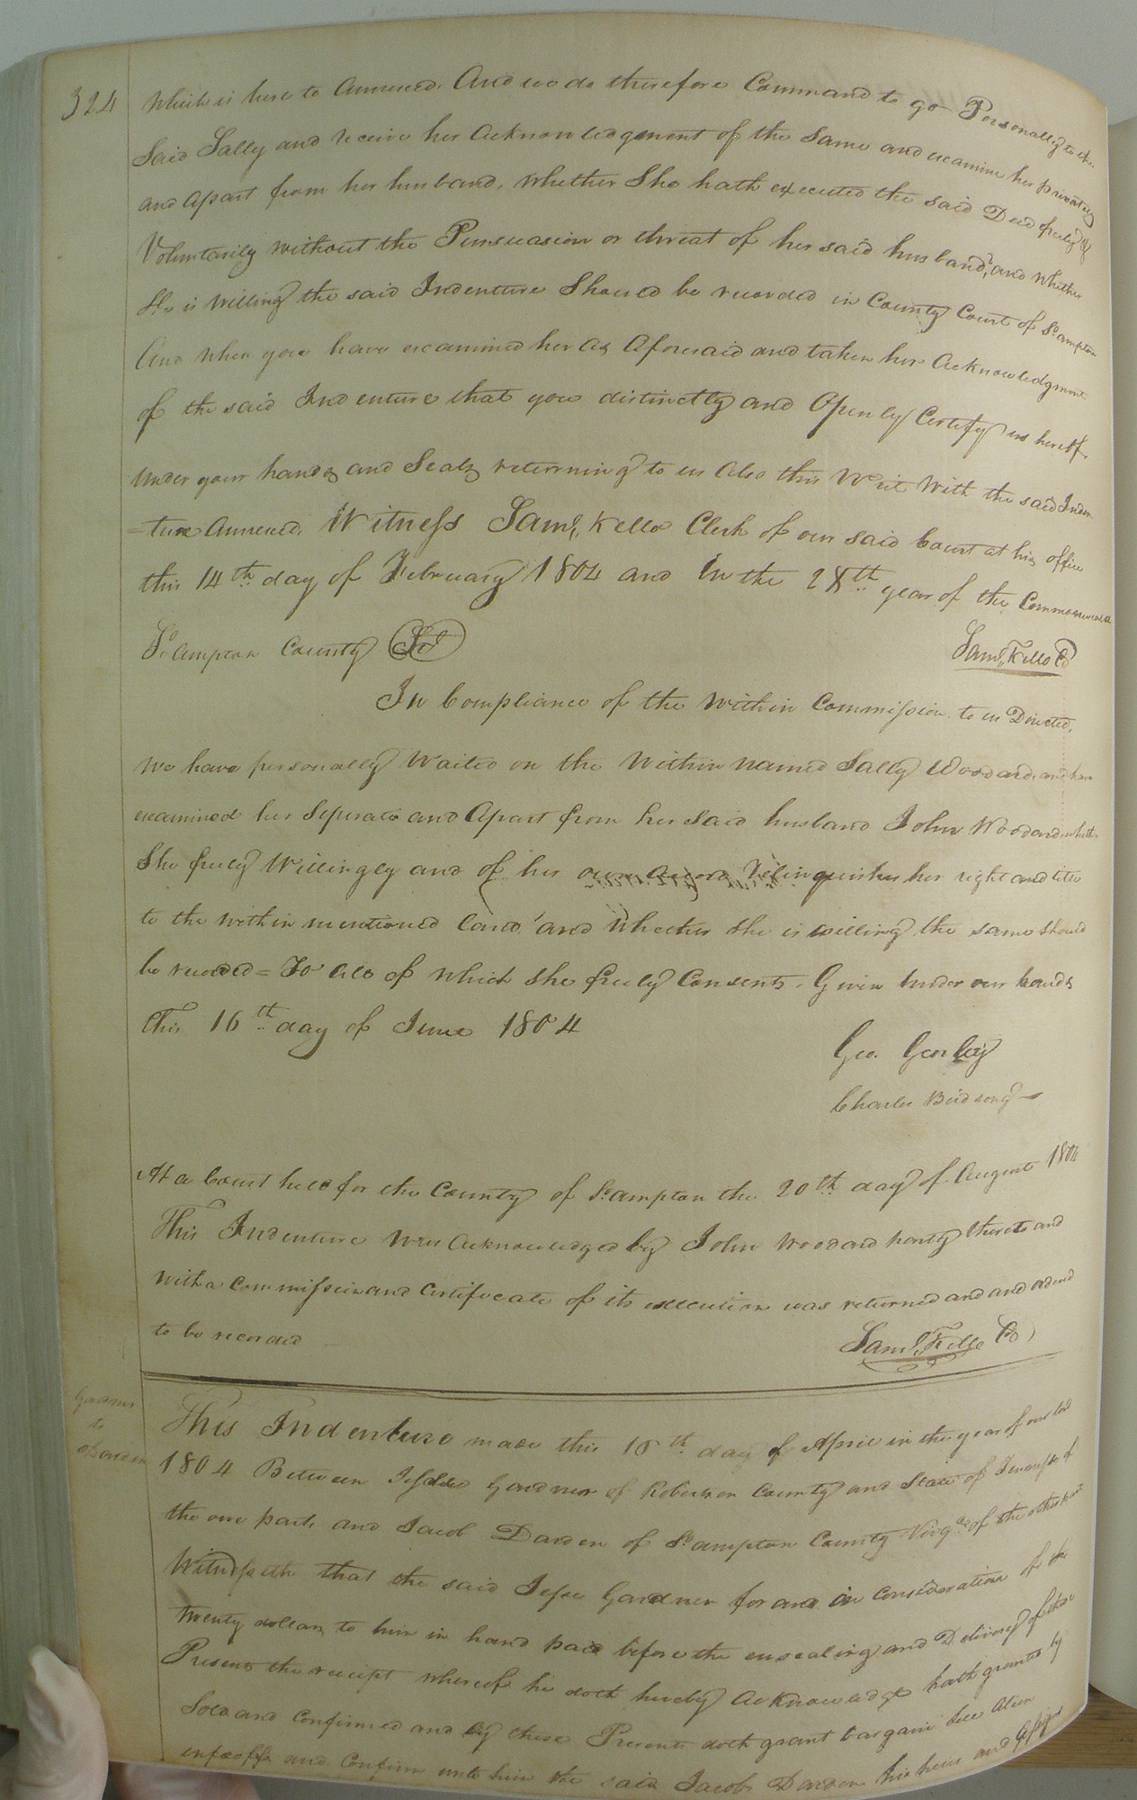 324
which is here to Annexed. And we do therefore Command to go Personally to the
Said Sally and receive her Acknowledgement of the Same and examine her privately
and apart from her husband, whether She hath executed the said Deed freely &
Voluntarily without the Persuasion or threat of her said husband, and whether
She is willing the said Indenture Should be recorded in County Court of So.ampton
And when you have examined her as Aforesaid and taken her Acknowledgment
of the said Indenture that you distinctly and Openly Certify us thereof
under your hands and Seals returning to us Also this Writ With the said Inden
=ture Annexed. Witness Saml. Kello Clerk of our said Court at his office
this 14th day of February 1804 and In the 28th year of the Commonwealth
So.ampton County Sct Saml. Kello CC
In Compliance of the Within Commission to us Directed,
We have personally Waited on the Within named Sally Woodard, and have
examined her Seperate and Apart from her said husband John Woodard whether
She freely Willingly and of her own Accord Relinquishes her right and title
to the within mentioned land and Whether she is willing the same should
be recorded = To All of which she freely Consents. Given Under our hands
This 16th day of June 1804
Geo. Gurley
Charles Birdsong
At a Court held for the County of So.ampton the 20th day of August 1804
This Indenture Was Acknowledged by John Woodard party thereto and
with a Commission and Certificate of its execution was returned and and ordered
to be recorded
Saml. Kello CC
Gardner
to
Darden
This Indenture made this 18th day of April in the year of our lord
1804 Between Jesse Gardner of Robertson County and State of Teneseee of
the one part, and Jacob Darden of So.ampton County Virga. of the other part
Witnesseth that the said Jesse Gardner for and in Consideration of the
twenty dollars to him in hand paid before the ensealing and Delivery of these
Presents the receipt whereof he doth hereby Acknowledge hath granted by
Sold and Confirmed and by these Presents doth grant bargain Sell Alien
enfeoff and Confirm unto him the said Jacob Darden his heirs and Assigns